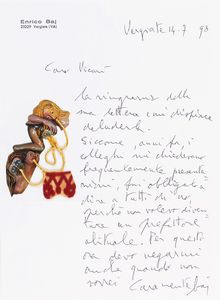 Enrico Baj
21029 Vergiate (VA)
Vergiate 14.7 98
Caro Vicari
la ringrazio della
sua lettera e mi dispiace
deluderla.
Siccome, anni fa, i
colleghi mi chiedevano
frequentemente presenta
zioni, fui obbligato a
dire a tutti di no,
perché non volevo diven
tare un prefatore
abituale. Per questo
ora devo negarmi
anche quando non
vorrei Caramente Baj